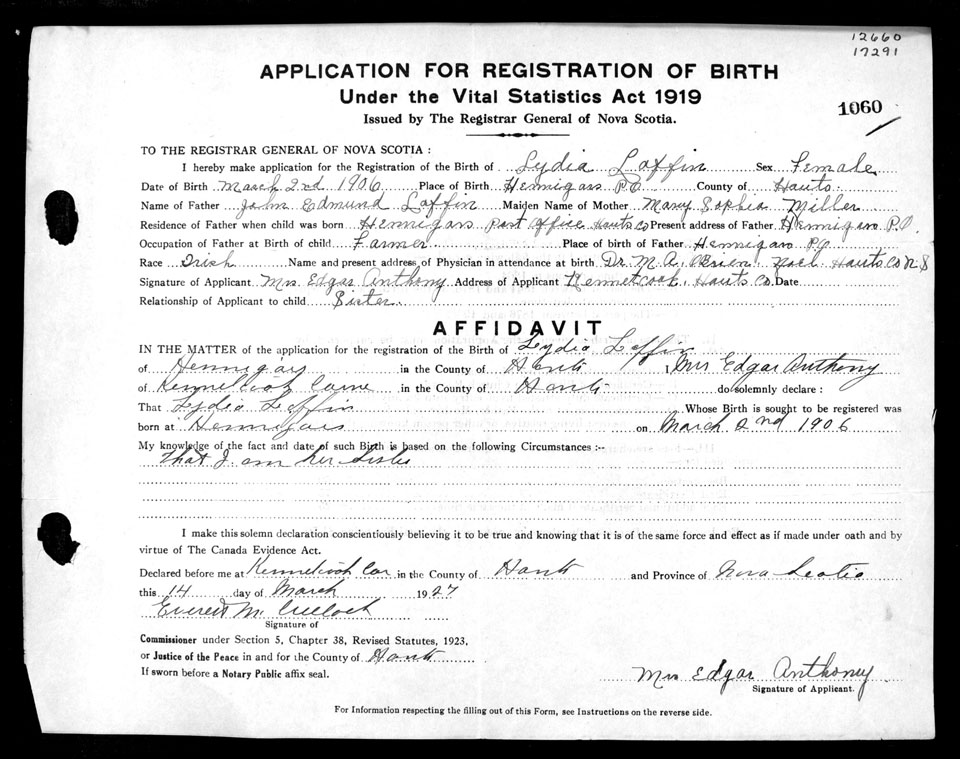 12660
17291
APPLICATION FOR REGISTRATION OF BIRTH
Under the Vital Statistics Act 1919
1060
Issued by The Registrar General of Nova Scotia.
TO THE REGISTRAR GENERAL OF NOVA SCOTIA :
I hereby make application for the Registration of the Birth of Lydia Laffin Sex Female
Date of Birth March 2nd 1906 Place of Birth Hennigars P.O County of Hants
Name of Father John Edmund Laffin Maiden Name of Mother Mary Sophia Miller
Residence of Father when child was born Hennigars Post Office Hants Co Present address of Father Hennigars P.O.
Occupation of Father at Birth of child Farmer Place of birth of Father Hennigars P.O
Race Irish Name and present address of Physician in attendance at birth Dr. M. A. OBrien, Noel Hants Co N.S
Signature of Applicant Mrs Edgar Anthony Address of Applicant Kennetcook, Hants Co. Date
Relationship of Applicant to child Sister.
AFFIDAVIT
IN THE MATTER of the application for the registration of the Birth of Lydia Laffin
of Hennigars in the County of Hants I, Mrs Edgar Anthony
of Kennetcook in the County of Hants do solemnly declare :
That Lydia Laffin Whose Birth is sought to be registered was
born at Hennigars on March 2nd 1906
My knowledge of the fact and date of such Birth is based on the following Circumstances :-
That I am her sister
I make this solemn declaration conscientiously believing it to be true and knowing that it is of the same force and effect as if made under oath and by
virtue of The Canada Evidence Act.
Declared before me at Kennetcook Cor in the County of Hants and Province of Nova Scotia
this 14 day of March 1927
Everett McCulloch
Signature of
Commissioner under Section 5, Chapter 38, Revised Statutes, 1923,
or Justice of the Peace in and for the County of Hants
If sworn before a Notary Public affix seal.
Mrs Edgar Anthony
Signature of Applicant.
For Information respecting the filling out of this Form, see Instructions on the reverse side.